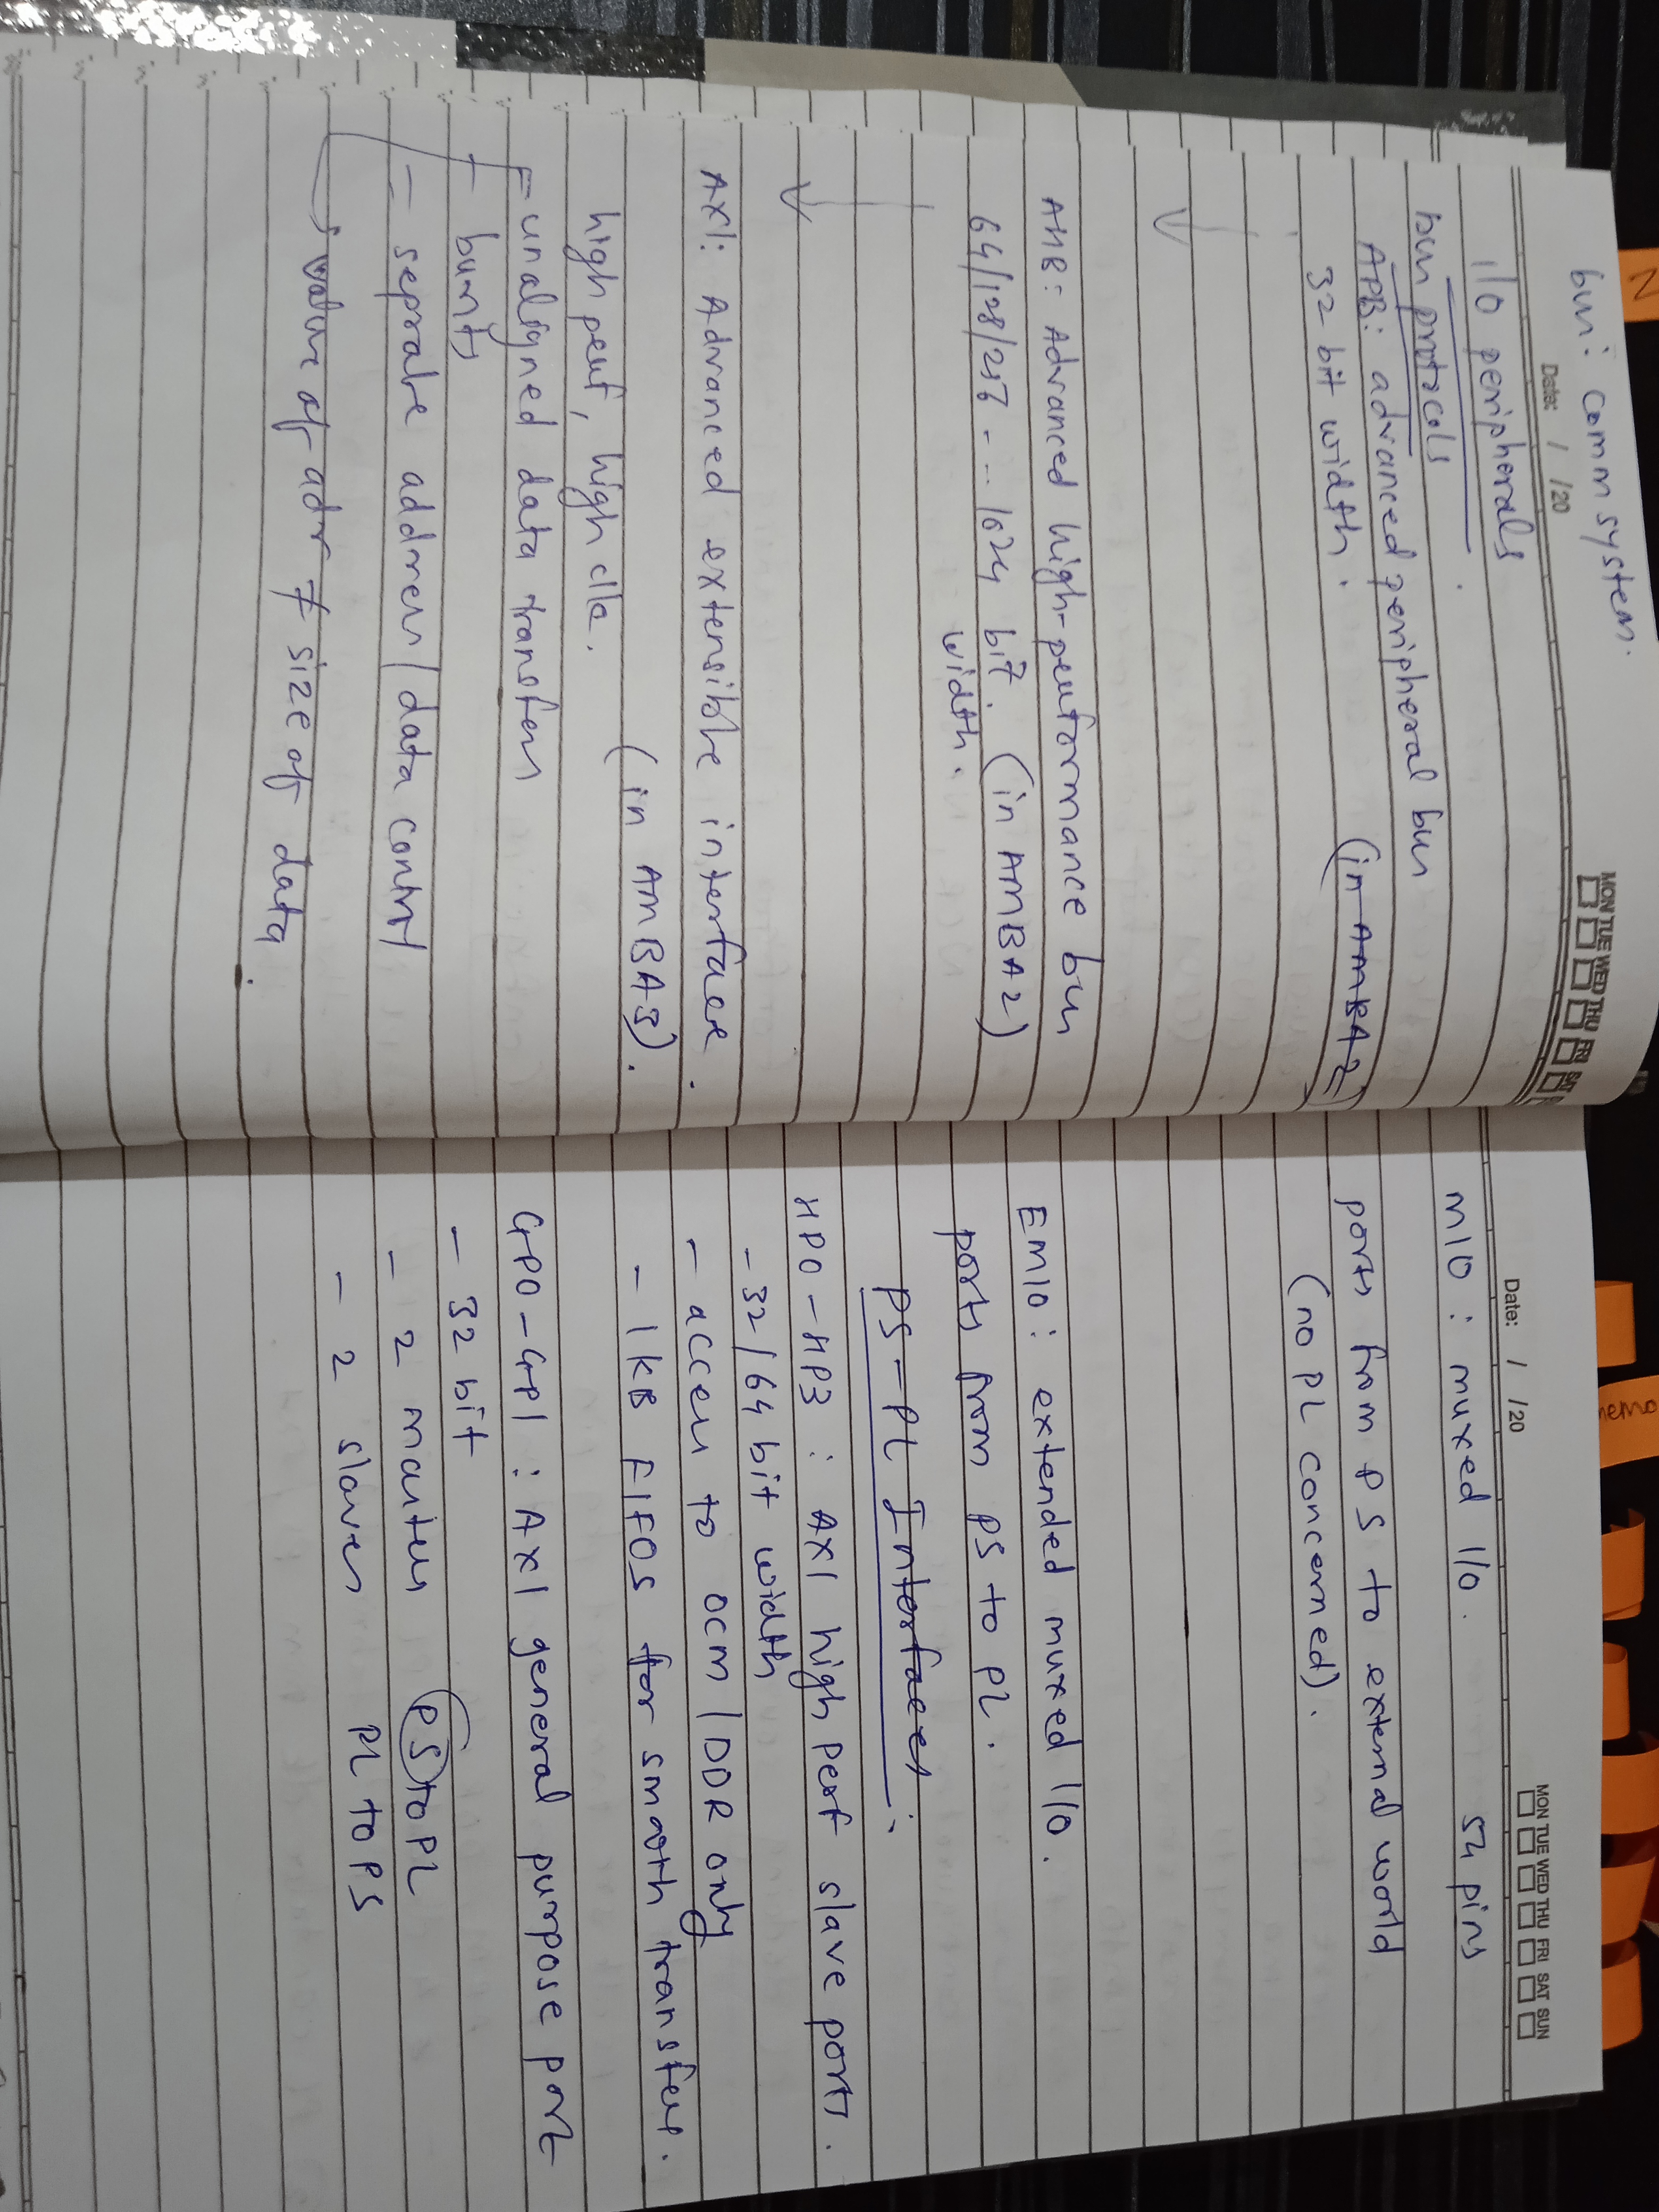 bus: comm system.
Date: / /20
MON TUE WED THU FRI SAT
I/O peripherals
bus protocols
APB: advanced peripheral bus
32 bit width.
(in AMBA2)
AHB: Advanced high-performance bus
64/128/256 - ... 1024 bit. (in AMBA2)
width.
AXI: Advanced extensible interface.
(in AMBA3).
high perf, high clk.
- unaligned data transfers
- bursts
- seprate address/data contrl
value of adr ≠ size of data.
Date: / /20
MON TUE WED THU FRI SAT SUN
MIO: muxed I/O. 54 pins
ports from PS to external world
(no PL concerned).
EMIO: extended muxed I/O.
ports from PS to PL.
PS-PL Interfaces:
HP0-HP3: AXI high perf slave ports.
- 32/64 bit width
- access to OCM/DDR only
- 1KB FIFOS for smooth transfer.
GP0-GP1: AXI general purpose port
- 32 bit
- 2 masters PS to PL
- 2 slaves PL to PS